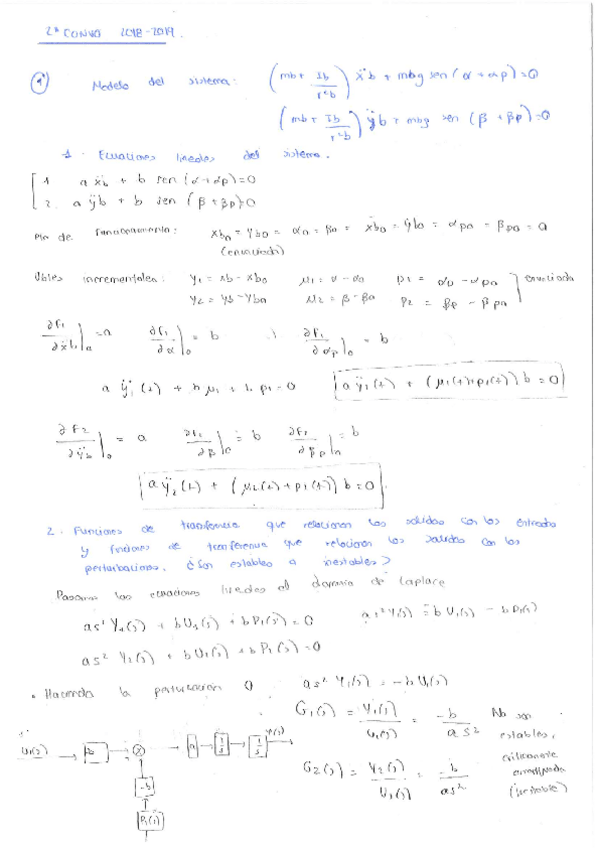 2ª CONVO 2018-2019.
1º Modelo del sistema: (mb + Ib/r²b) ẍb + mbg sen(α + αp) = 0
(mb + Ib/r²b) ÿb + mbg sen(β + βp) = 0
1. Ecuaciones lineales del sistema.
1. a ẍb + b sen(α+αp)=0
2. a ÿb + b sen(β+βp)=0
Pto de funcionamiento: xb0 = yb0 = α0 = β0 = ẍb0 = ÿb0 = αp0 = βp0 = 0
(enunciado)
Vbles incrementales: y1 = xb - xb0 μ1 = α - α0 p1 = αp - αp0 enunciado
y2 = yb - yb0 μ2 = β - β0 p2 = βp - βp0
∂F1/∂ẍb|0 = a ∂F1/∂α|0 = b ∂F1/∂αp|0 = b
a ÿ1(t) + b μ1 + b p1 = 0 a ÿ1(t) + (μ1(t)+p1(t)) b = 0
∂F2/∂ÿb|0 = a ∂F2/∂β|0 = b ∂F2/∂βp|0 = b
a ÿ2(t) + (μ2(t)+p2(t)) b = 0
2. Funciones de transferencia que relacionan las salidas con las entradas
y funciones de transferencia que relacionan las salidas con las
perturbaciones. ¿Son estables o inestables?
Pasamos las ecuaciones lineales al dominio de Laplace
as² Y1(s) + b U1(s) + b P1(s) = 0 as² Y1(s) = -b U1(s) - b P1(s)
as² Y2(s) + b U2(s) + b P2(s) = 0
• Haciendo la perturbación 0 as² Y1(s) = -b U1(s)
G1(s) = Y1(s)/U1(s) = -b/as² No son
estables,
críticamente
G2(s) = Y2(s)/U2(s) = -b/as²
(inestable)
U1(s) -b a 1/s 1/s Y(s)
-b
P1(s)